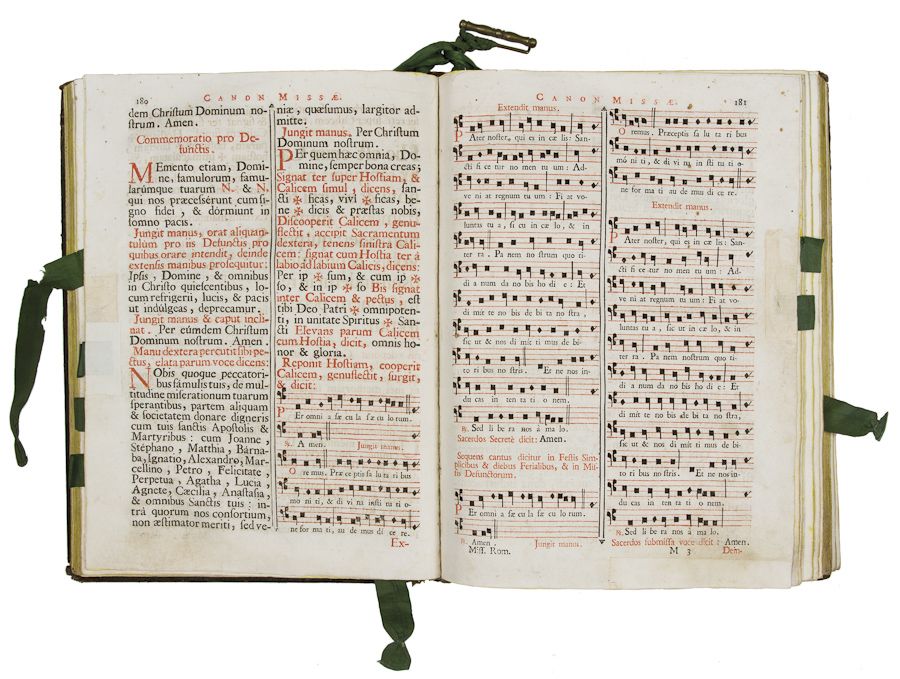 180
CANON MISSÆ.
dem Christum Dominum no-
strum. Amen.
Commemoratio pro De-
functis.
MEmento etiam, Domi-
ne, famulorum, famu-
larúmque tuarum N. & N.
qui nos præcessérunt cum si-
gno fidei, & dórmiunt in
somno pacis.
Jungit manus, orat aliquan-
tulùm pro iis Defunctis, pro
quibus orare intendit, deinde
extensis manibus prosequitur:
Ipsis, Domine, & omnibus
in Christo quiescentibus, lo-
cum refrigerii, lucis, & pacis
ut indúlgeas, deprecamur.
Jungit manus & caput incli-
nat. Per eúmdem Christum
Dominum nostrum. Amen.
Manu dextera percutit sibi pe-
ctus, elata parum voce dicens:
NObis quoque peccatori-
bus fámulis tuis, de mul-
titudine miserationum tuarum
sperantibus, partem aliquam
& societatem donare digneris
cum tuis sanctis Apostolis &
Martyribus: cum Joanne,
Stéphano, Matthia, Bárna-
ba, Ignatio, Alexandro, Mar-
cellino, Petro, Felicitate,
Perpetua, Agatha, Lucia,
Agnete, Cæcilia, Anastasia,
& omnibus Sanctis tuis: in-
trà quorum nos consortium,
non æstimator meriti, sed ve-
niæ, quæsumus, largitor ad-
mitte.
Jungit manus. Per Christum
Dominum nostrum.
PEr quem hæc omnia, Do-
mine, semper bona creas;
Signat ter super Hostiam, &
Calicem simul, dicens, san-
cti ✠ ficas, vivi ✠ ficas, be-
ne ✠ dicis & præstas nobis,
Discooperit Calicem, genu-
flectit, accipit Sacramentum
dextera, tenens sinistra Cali-
cem: signat cum Hostia ter à
labio ad labium Calicis, dicens:
Per ip ✠ sum, & cum ip ✠
so, & in ip ✠ so Bis signat
inter Calicem & pectus, est
tibi Deo Patri ✠ omnipoten-
ti, in unitate Spiritus ✠ San-
cti Elevans parum Calicem
cum Hostia, dicit, omnis ho-
nor & gloria.
Reponit Hostiam, cooperit
Calicem, genuflectit, surgit,
& dicit:
PEr omni a sæ cu la sæ cu lorum.
℟. A men. Jungit manus.
Oremus. Præ cep tis sa lu ta ri bus
mo ni ti, & di vi na insti tu ti o-
ne for ma ti, au de mus di ce re.
Ex-
CANON MISSÆ.
181
Extendit manus.
PAter noster, qui es in cæ lis: San-
cti fi ce tur no men tu um: Ad-
ve ni at regnum tu um: Fi at vo-
luntas tu a, si cu in cæ lo, & in
ter ra. Pa nem no strum quo ti-
di a num da no bis ho di e: Et
di mit te no bis de bi ta no stra,
sic ut & nos di mit ti mus de bi-
to ri bus nostris. Et ne nos in-
du cas in ten ta ti o nem.
℟. Sed li be ra nos à ma lo.
Sacerdos Secretè dicit: Amen.
Sequens cantus dicitur in Festis Sim-
plicibus & diebus Ferialibus, & in Mis-
sis Defunctorum.
PEr omni a sæ cu la sæ cu lorum.
℟. Amen. Jungit manus.
Miss. Rom.
Oremus. Præceptis sa lu ta ri bus
mó ni ti, & di vi na in sti tu ti o-
ne for ma ti au de mus di ce re.
Extendit manus.
PAter noster, qui es in cæ lis: San-
cti fi ce tur no men tu um: Ad-
ve ni at regnum tu um: Fi at vo-
luntas tu a, sic ut in cæ lo, & in
ter ra. Pa nem nostrum quo ti-
di a num da no bis ho di e: Et
di mit te no bis de bi ta no stra,
sic ut & nos di mit ti mus de bi-
to ri bus no stris. Et ne nos in-
du cas in ten ta ti o nem.
℟. Sed li be ra nos à ma lo.
Sacerdos submissa voce dicit: Amen.
M 3 Dein-